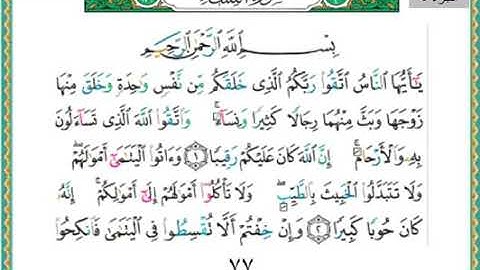 بِسْمِ اللَّهِ الرَّحْمَٰنِ الرَّحِيمِ
يَا أَيُّهَا النَّاسُ اتَّقُوا رَبَّكُمُ الَّذِي خَلَقَكُم مِّن نَّفْسٍ وَاحِدَةٍ وَخَلَقَ مِنْهَا
زَوْجَهَا وَبَثَّ مِنْهُمَا رِجَالًا كَثِيرًا وَنِسَاءً ۚ وَاتَّقُوا اللَّهَ الَّذِي تَسَاءَلُونَ
بِهِ وَالْأَرْحَامَ ۚ إِنَّ اللَّهَ كَانَ عَلَيْكُمْ رَقِيبًا ﴿١﴾ وَآتُوا الْيَتَامَىٰ أَمْوَالَهُمْ ۖ
وَلَا تَتَبَدَّلُوا الْخَبِيثَ بِالطَّيِّبِ ۖ وَلَا تَأْكُلُوا أَمْوَالَهُمْ إِلَىٰ أَمْوَالِكُمْ ۚ إِنَّهُ
كَانَ حُوبًا كَبِيرًا ﴿٢﴾ وَإِنْ خِفْتُمْ أَلَّا تُقْسِطُوا فِي الْيَتَامَىٰ فَانكِحُوا
٧٧